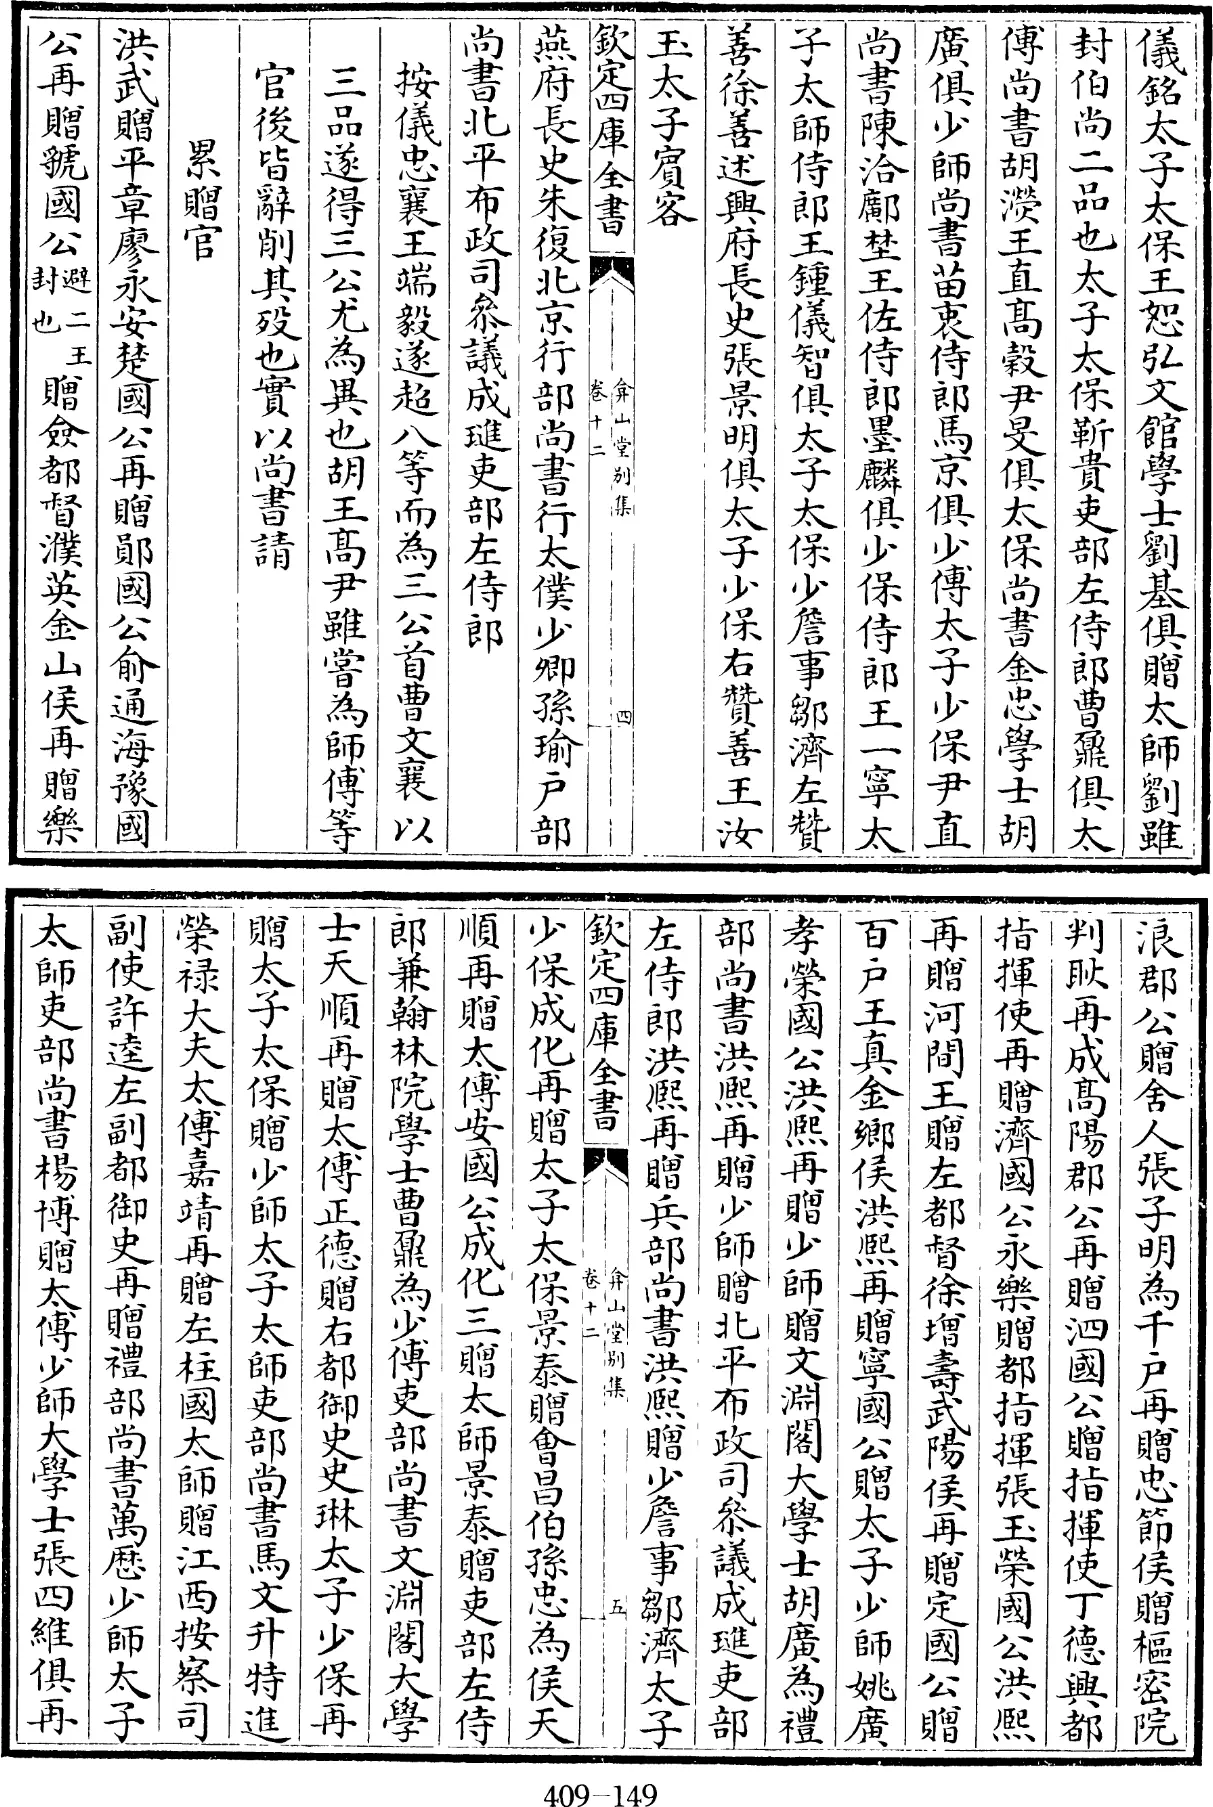 儀銘太子太保王恕弘文館學士劉基俱贈太師劉雖
封伯尚二品也太子太保靳貴吏部左侍郎曹鼐俱太
傅尚書胡濙王直髙榖尹旻俱太保尚書金忠學士胡
廣俱少師尚書苗衷侍郎馬京俱少傅太子少保尹直
尚書陳洽鄺埜王佐侍郎墨麟俱少保侍郎王一寧太
子太師侍郎王鍾儀智俱太子太保少詹事鄒濟左贊
善徐善述興府長史張景明俱太子少保右贊善王汝
玉太子賓客
欽定四庫全書
弇山堂别集
卷十二
四
燕府長史朱復北京行部尚書行太僕少卿孫瑜户部
尚書北平布政司叅議成璡吏部左侍郎
按儀忠襄王端毅遂超八等而為三公首曹文襄以
三品遂得三公尤為異也胡王髙尹雖嘗為師傅等
官後皆辭削其殁也實以尚書請
累贈官
洪武贈平章廖永安楚國公再贈鄖國公俞通海豫國
公再贈虢國公避二王封也贈僉都督濮英金山侯再贈樂
浪郡公贈舍人張子明為千户再贈忠節侯贈樞密院
判耿再成髙陽郡公再贈泗國公贈指揮使丁德興都
指揮使再贈濟國公永樂贈都指揮張玉榮國公洪熙
再贈河間王贈左都督徐增壽武陽侯再贈定國公贈
百户王真金鄉侯洪熙再贈寧國公贈太子少師姚廣
孝榮國公洪熙再贈少師贈文淵閣大學士胡廣為禮
部尚書洪熙再贈少師贈北平布政司叅議成璡吏部
左侍郎洪熙再贈兵部尚書洪熙贈少詹事鄒濟太子
欽定四庫全書
弇山堂别集
卷十二
五
少保成化再贈太子太保景泰贈會昌伯孫忠為侯天
順再贈太傅安國公成化三贈太師景泰贈吏部左侍
郎兼翰林院學士曹鼐為少傅吏部尚書文淵閣大學
士天順再贈太傅正德贈右都御史史琳太子少保再
贈太子太保贈少師太子太師吏部尚書馬文升特進
榮禄大夫太傅嘉靖再贈左柱國太師贈江西按察司
副使許逵左副都御史再贈禮部尚書萬厯少師太子
太師吏部尚書楊博贈太傅少師大學士張四維俱再
409-149